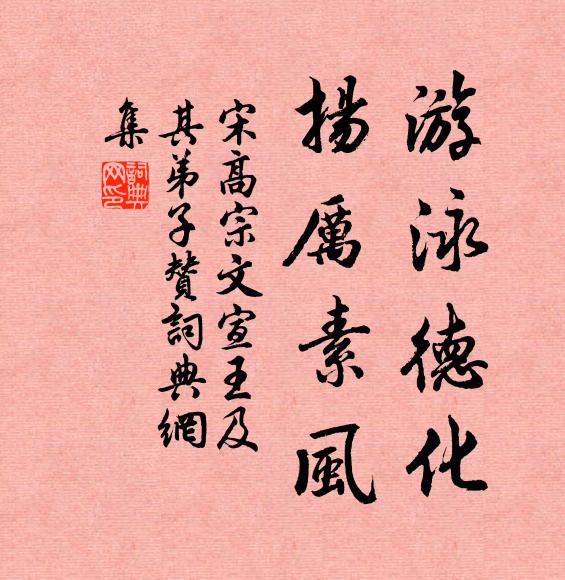 游泳德化
揚厲素風
宋高宗文宣王及
其弟子贊詞典網
集
詞典網印